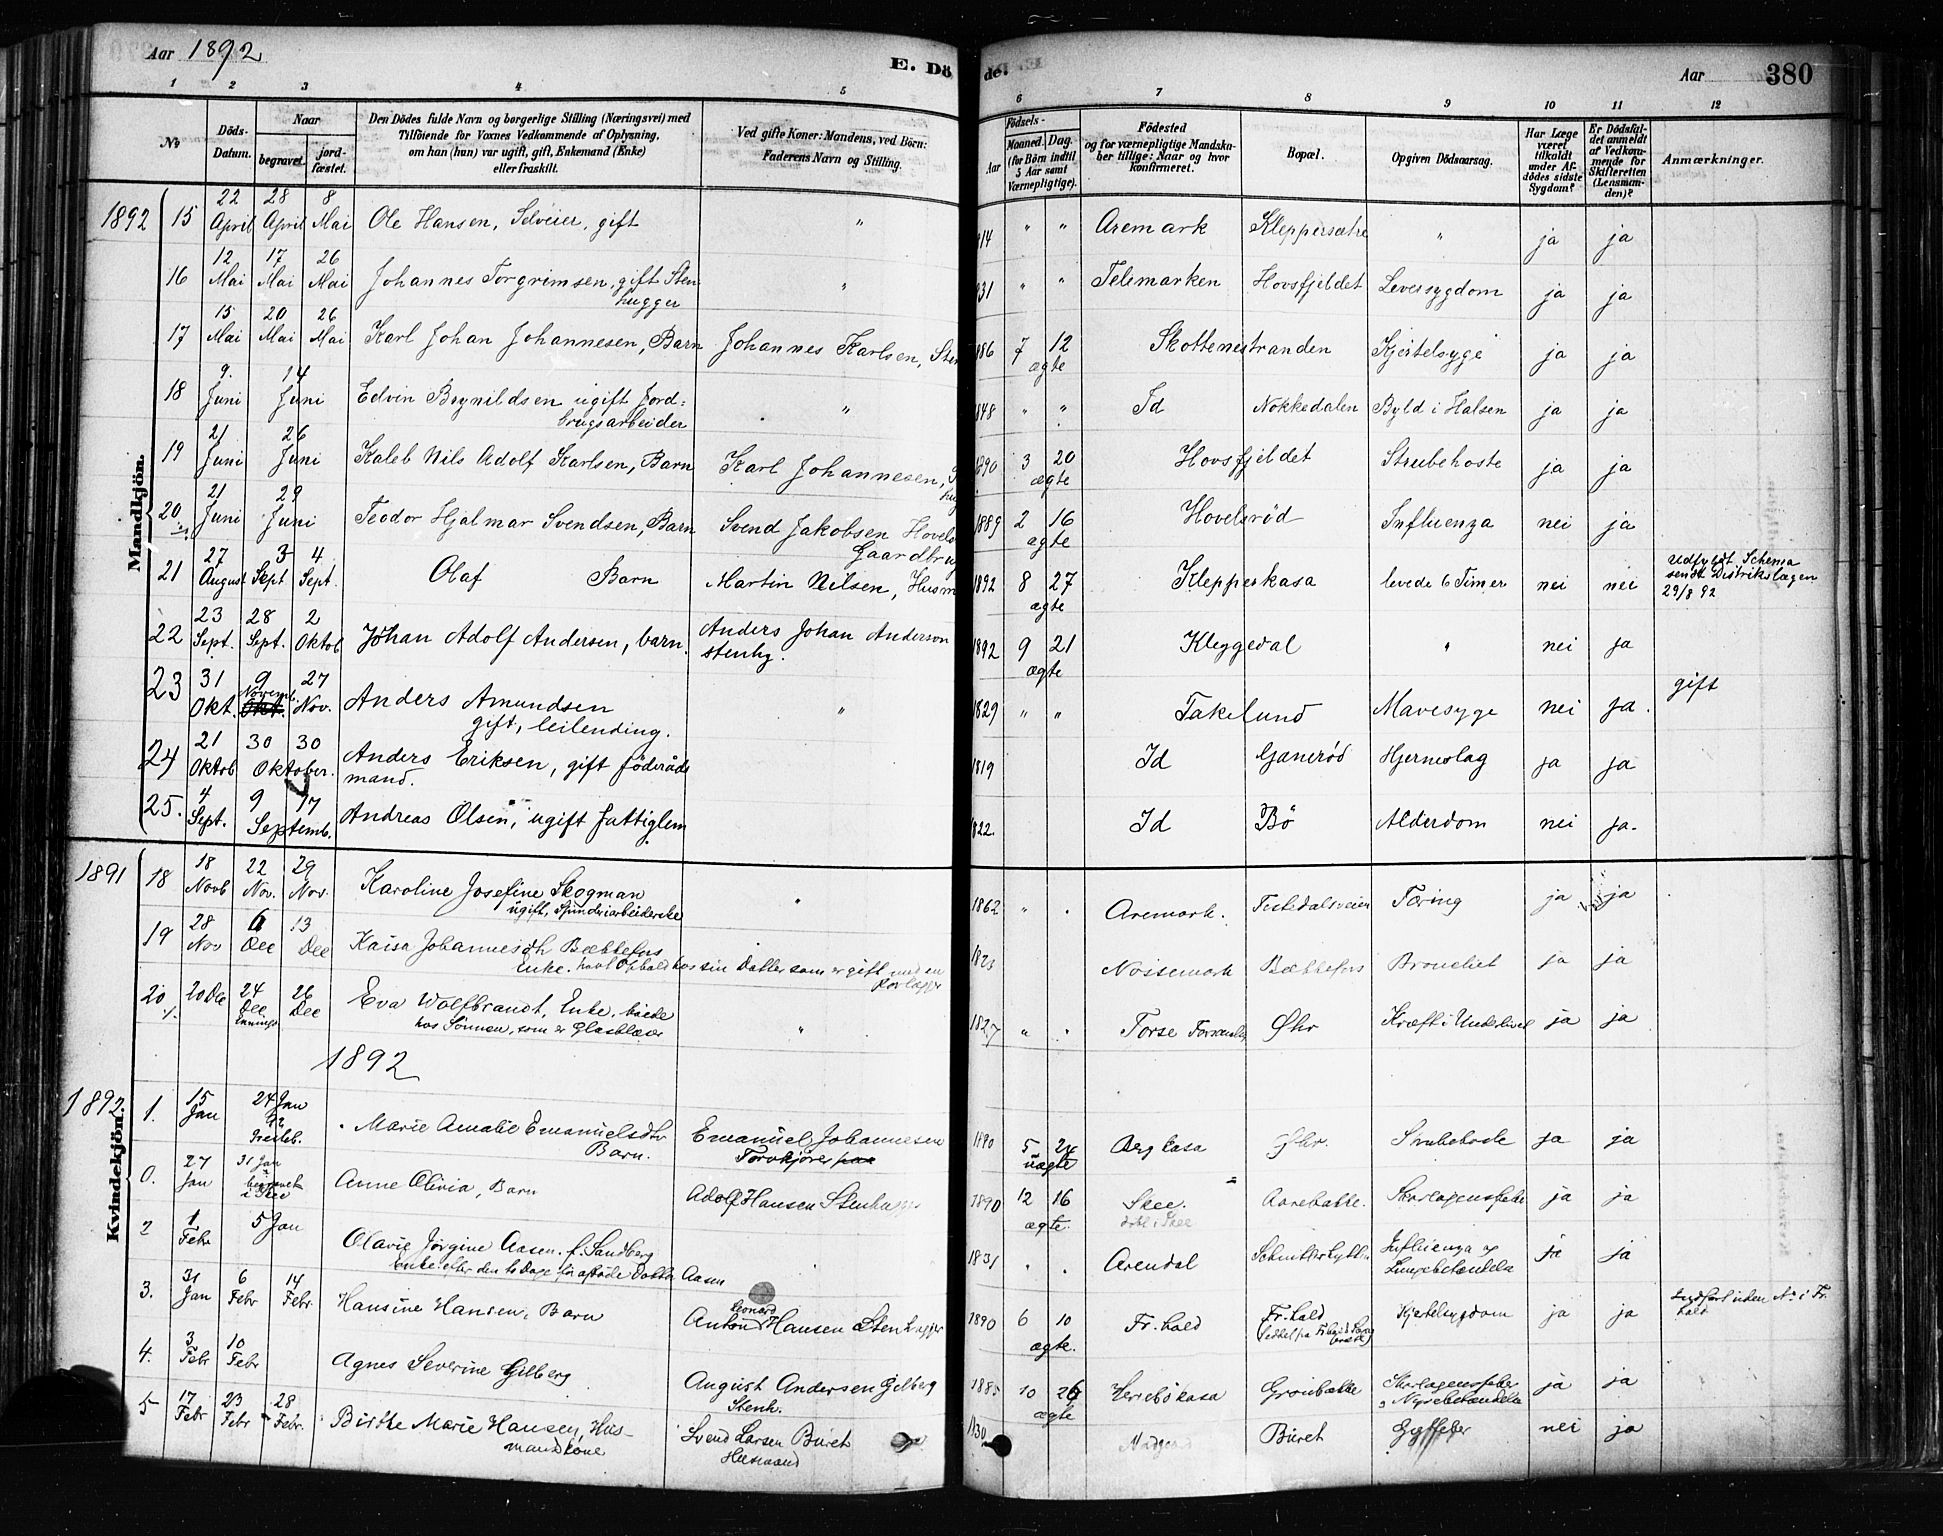 Aar 1892
E. Dö de.
Aar 380
1 2 3 4 5 6 7 8 9 10 11 12
No
Döds-Datum.
Naar
begravet.
jordfæstet.
Den Dödes fulde Navn og borgerlige Stilling (Næringsvei) med
Tilföiende for Voxnes Vedkommende af Oplysning,
om han (hun) var ugift, gift, Enkemand (Enke)
eller fraskilt.
Ved gifte Koner: Mandens, ved Börn:
Faderens Navn og Stilling.
Födsels-
Aar
Maaned. Dag.
(for Börn indtil
5 Aar samt
Værnepligtige).
Födested
og for værnepligtige Mandskaber tillige: Naar og hvor
konfirmeret.
Bopæl.
Opgiven Dödsaarsag.
Har Læge
været
tilkaldt
under Afdödes sidste
Sygdom?
Er Dödsfaldet anmeldt
af Vedkommende for
Skifteretten
(Lensmanden)?
Anmærkninger.
Mandkjön.
1892 15 22 April 28 April 8 Mai Ole Hansen, Selveier, gift " 14 " " Aremark Kleppersætre " ja ja
16 12 Mai 17 Mai 26 Mai Johannes Torgrimsen, gift Stenhugger " 31 " " Telemarken Hovsfjeldet Leversygdom ja ja
17 15 Mai 20 Mai 26 Mai Karl Johan Johannesen, Barn Johannes Karlsen, Sten 86 7 12 ægte Skottenestranden Kjertelsyge ja ja
18 9. Juni 14 Juni Edvin Brynildsen ugift Jordbrugsarbeider " 48 " " Id Nokkedalen Byld i Halsen ja ja
19 21 Juni 26 Juni Kaleb Nils Adolf Karlsen, Barn Karl Johannesen, 1890 3 20 ægte Hovsfjeldet Strubehoste ja ja
20 21 Juni 29 Juni Teodor Hjalmar Svendsen, Barn Svend Jakobsen Hovels Gaardbru 1889 2 16 ægte Hovelsrød Influenza nei ja
21 27 August 3 Sept 4 Sept. Olaf Barn Martin Nilsen, Husm 1892 8 27 ægte Klepperkasa levede 6 Timer nei nei Udfyldt Schema sendt Distriktslægen 29/8 92
22 23 Sept. 28 Sept. 2 Oktob Johan Adolf Andersen, barn. Anders Johan Anderson stenhg. 1892 9 21 ægte Kleggedal " nei ja
23 31 Okt. 9 Novemb. Okt. 27 Nov. Anders Amundsen gift, leilending. " 1829 " " Takelund Mavesyge nei ja. gift
24 21 Oktob 30 30 Oktober. Anders Eriksen, gift föderådsmand. 1819 Id Ganerød Hjerneslag ja ja
25. 4 Sept. 9 17 Septemb. Andreas Olsen, ugift Fattiglem 822. Id Bö Alderdom nei ja.
Kvindekjön.
1891 18 18 Novb 22 Nov. 29 Nov. Karoline Josefine Skogman ugift, Spinderiarbeiderske " 1862 " " Aremark. Tistedalsveien Tæring ja ja
19 28 Nov 6 Dec 13 Dec Kaisa Johannesdtr Bækkefors Enke. havt Ophold hos sin Datter som er gift med en 182 Noisemark Bækkefors Bronchit ja ja
20 20 Dec 24 Dec 26 Dec Eva Wolfbrandt, Enke, boede hos Sønnen, som er Glasblæser " 1827 " " Torse Øhr Kræft i Underlivet ja ja
1892
1892 1. 15 Jan 24 Jan Marie Amalie Emanuelsdtr Barn. Emanuel Johannesen Torvkjører 1890 5 24 uægte Berg kasa Øhr. Strubehoste ja ja
0. 27 Jan 31 Jan begravet i Skee Anne Olivia, Barn Adolf Hansen Stenhugger 1890 12 16 ægte. Skee. Aarebakke. Skarlagensfeber ja ja
2 1 Febr 5 Jan Olavie Jørgine Aasen. f. Sandberg 1831 " " Arendal Influenza og Lungebetændelse ja ja
3. 31 Jan 6 Febr 14 Febr. Hansine Hansen, Barn Anton Leonard Hansen Stenhugger 1890 6 10 ægte. Fr. hald Fr. hald Kjertelsygdom ja ja Indført uden No i Fr. hald
4. 3 Febr 10 Febr Agnes Severine Gilberg August Andersen Gilberg Stenh. 1885 10 26 ægte Herrebøkasa Grønbakke Skarlagensfeber og Nyrebetændelse ja ja
5 17 Febr 23 Febr 28 Febr. Birthe Marie Hansen, Husmandskone Svend Larsen Buret Husmand 30 Buret nei ja